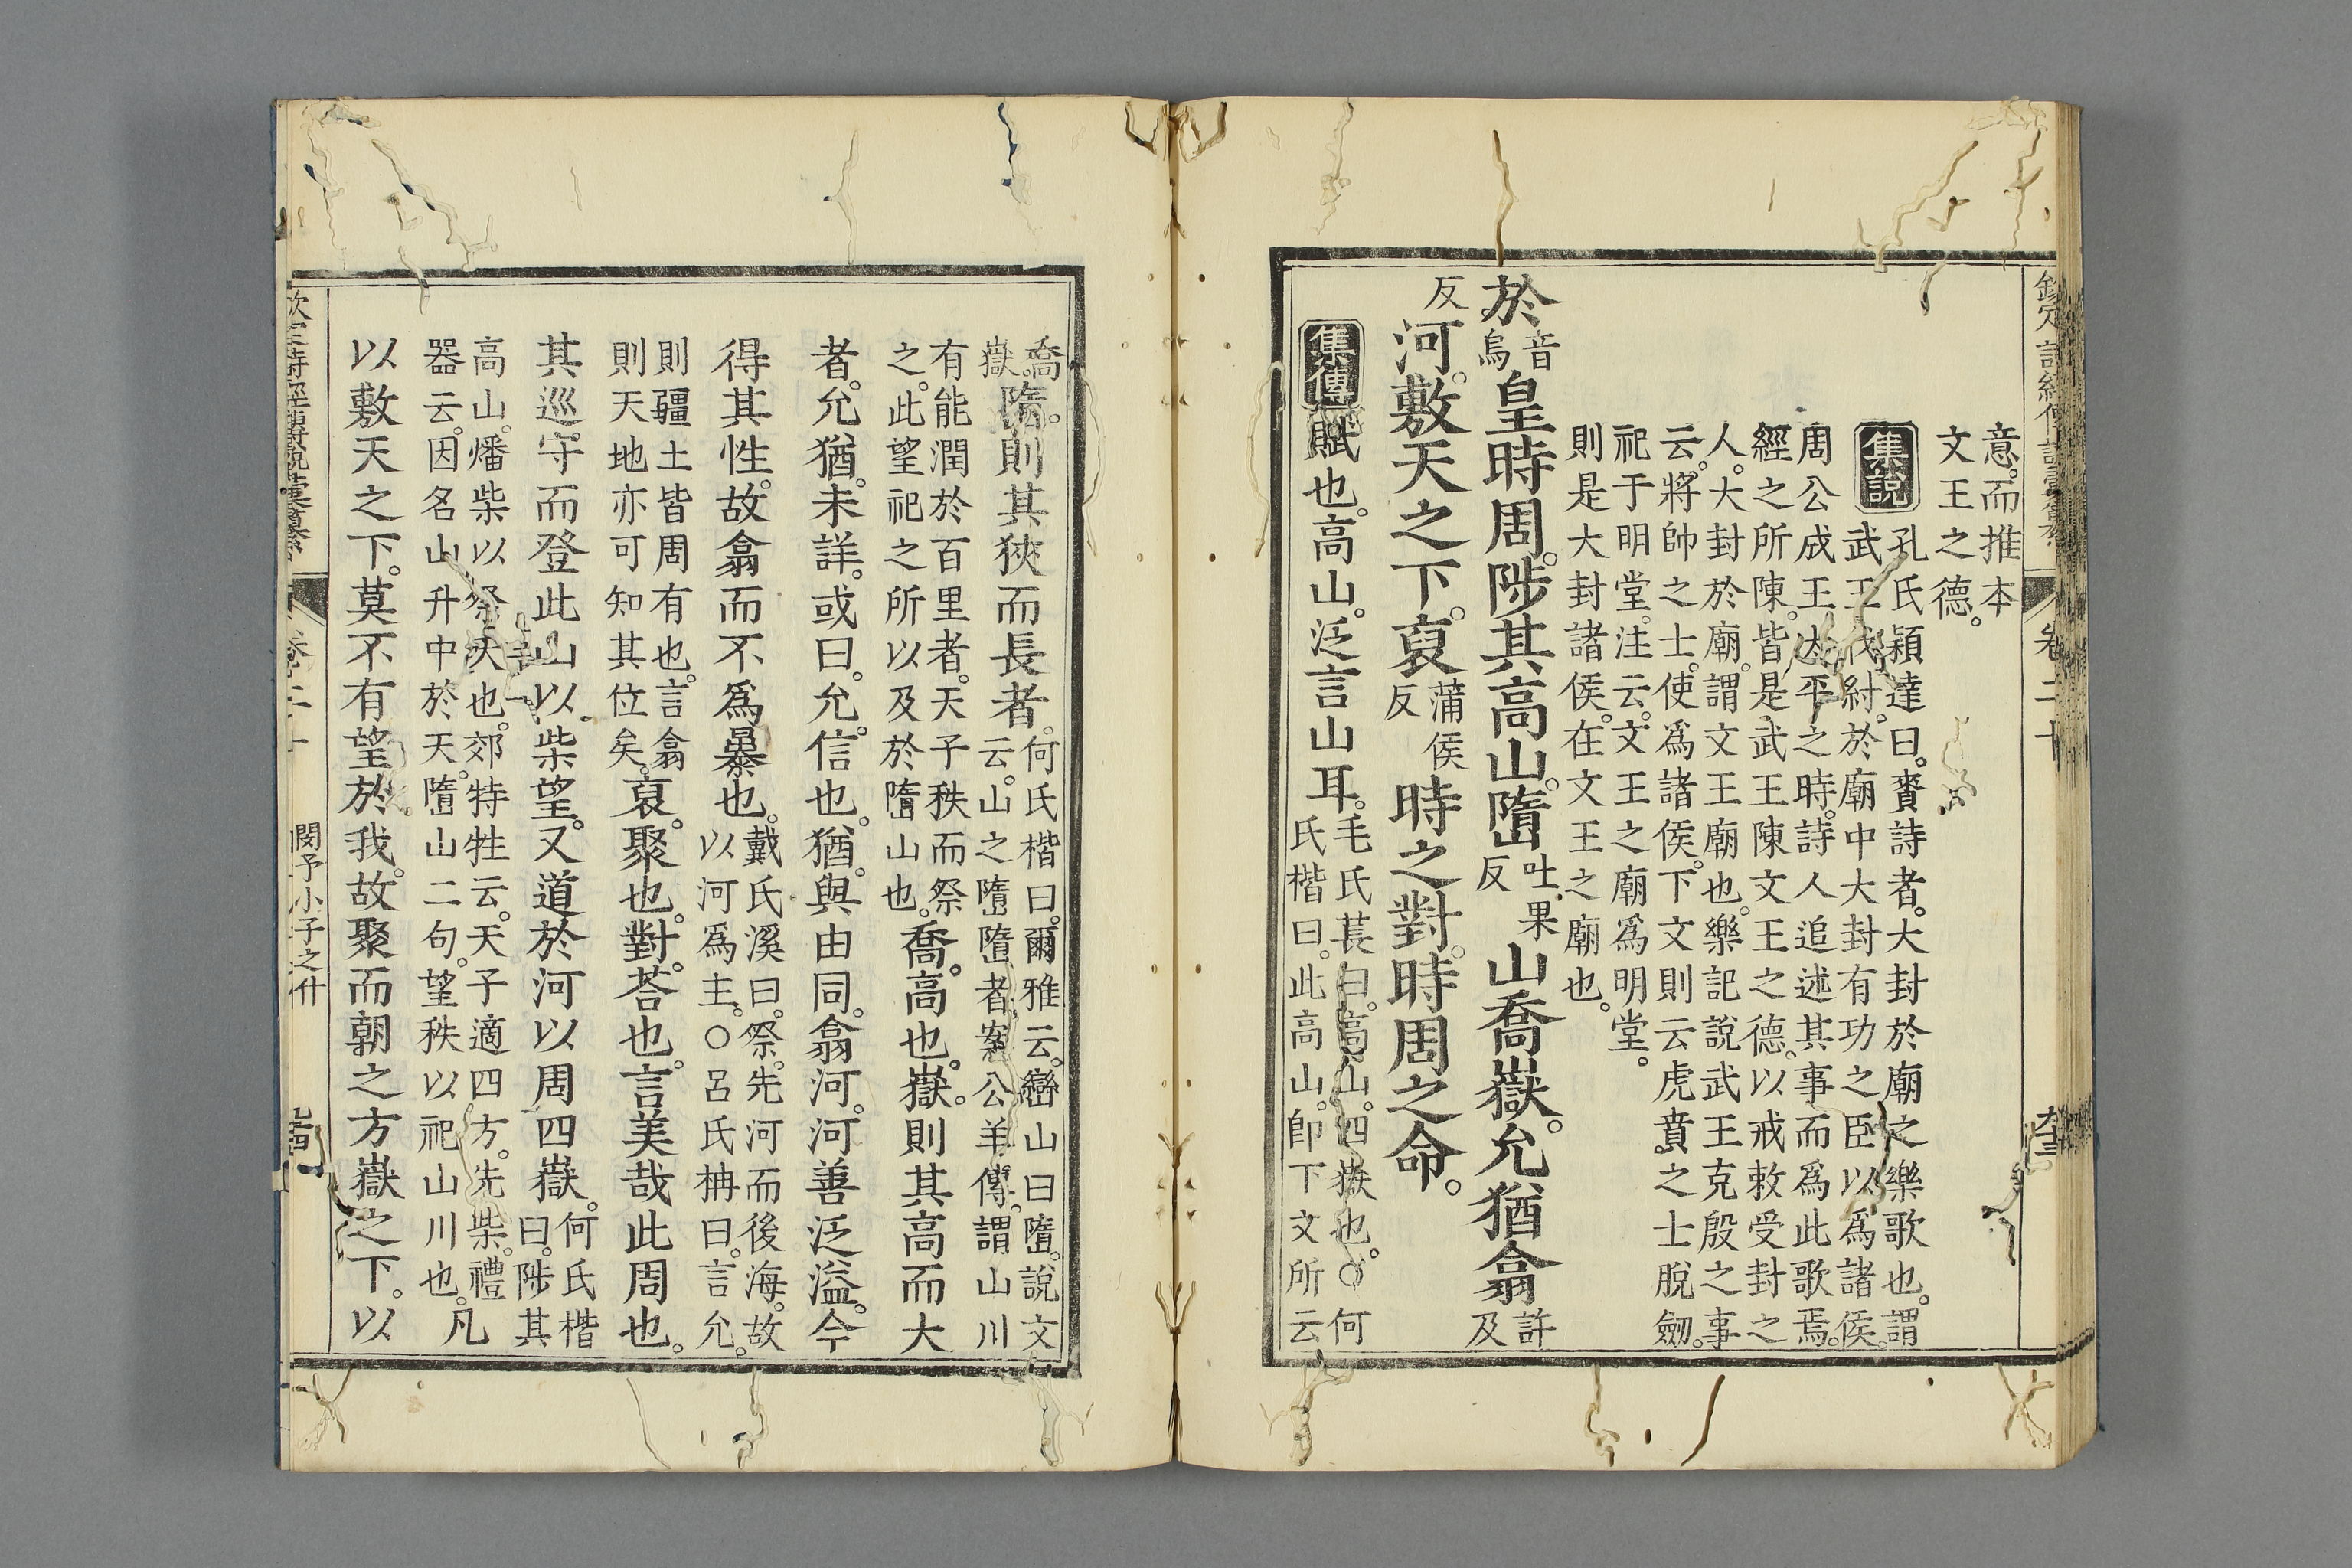 意。而推本
文王之德。
集說
孔氏穎達曰。賚詩者。大封於廟之樂歌也。謂
武王伐紂。於廟中大封有功之臣以爲諸侯。
周公成王太平之時。詩人追述其事而爲此歌焉。
經之所陳。皆是武王陳文王之德。以戒敕受封之
人。大封於廟。謂文王廟也。樂記說武王克殷之事
云。將帥之士。使爲諸侯。下文則云虎賁之士脫劒。
祀于明堂。注云。文王之廟爲明堂。
則是大封諸侯。在文王之廟也。
於音烏皇時周。陟其高山。嶞吐果反山喬嶽。允猶翕許及
反河。敷天之下。裒蒲侯反時之對。時周之命。
集傳
賦也。高山。泛言山耳。毛氏萇曰。高山。四嶽也。○何
氏楷曰。此高山。卽下文所云
卷二十
喬
嶽。嶞。則其狹而長者。何氏楷曰。爾雅云。巒山曰嶞。說文
云。山之嶞嶞者。案公羊傳。謂山川
有能潤於百里者。天子秩而祭
之。此望祀之所以及於嶞山也。喬。高也。嶽。則其高而大
者。允猶。未詳。或曰。允。信也。猶。與由同。翕河。河善泛溢。今
得其性。故翕而不爲暴也。戴氏溪曰。祭。先河而後海。故
以河爲主。○呂氏柟曰。言允。
則疆土皆周有也。言翕
則天地亦可知其位矣。裒。聚也。對。荅也。言美哉此周也。
其巡守而登此山以柴望。又道於河以周四嶽。何氏楷
曰。陟其
高山。燔柴以祭天也。郊特牲云。天子適四方。先柴。禮
器云。因名山升中於天。嶞山二句。望秩以祀山川也。凡
以敷天之下。莫不有望於我。故聚而朝之方嶽之下。以
欽定詩經傳說彙纂
卷二十
閔予小子之什